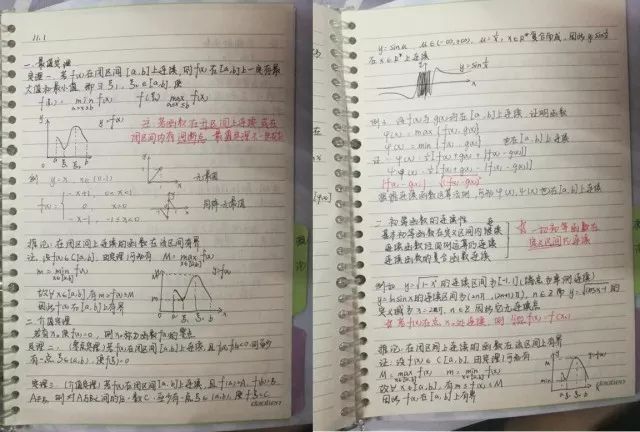 11.1
一. 最值定理
定理一. 若f(x)在闭区间[a,b]上连续, 则f(x)在[a,b]上一定有最
大值和最小值, 即∃ξ₁, ξ₂∈[a,b], 使
f(ξ₁) = min f(x) f(ξ₂) = max f(x)
a≤x≤b a≤x≤b
y y=f(x)
a ξ₁ ξ₂ b x
注: 若函数在开区间上连续, 或在
闭区间内有间断点, 最值定理不一定
例 y=x, x∈(-1,1) 无最值
f(x) = { -x+1, 0<x≤1
0 x=0
-x-1, -1≤x<0
推论: 在闭区间上连续的函数在该区间有界
证: 设f(x)∈C[a,b], 由定理1可知有 M = max f(x)
x∈[a,b]
m = min f(x)
x∈[a,b]
M y=f(x)
m
故∀x∈[a,b], 有m≤f(x)≤M
因此f(x)在[a,b]上有界
二. 介值定理
若有x₀使f(x₀)=0, 则x₀称为函数f(x)的零点
定理二. (零点定理) 若f(x)在闭区间[a,b]上连续, 且f(a)·f(b)<0, 则至少
有一点ξ∈(a,b), 使f(ξ)=0
定理三. (介值定理) 若f(x)在闭区间[a,b]上连续, 且f(a)=A, f(b)=B,
A≠B, 则对A与B之间的任一数C, 至少有一点ξ∈(a,b), 使f(ξ)=C
y=sinu, u∈(-∞,+∞), u=1/x, x∈R*复合而成, 因此y=sin1/x
在x∈R*上连续
y=sin1/x
例5. 设f(x)与g(x)均在[a,b]上连续, 证明函数
φ(x) = max{f(x), g(x)}
ψ(x) = min{f(x), g(x)} 也在[a,b]上连续
证: φ(x) = ½[f(x)+g(x)+|f(x)-g(x)|]
ψ(x) = ½[f(x)+g(x)-|f(x)-g(x)|]
|f(x)-g(x)|
根据连续函数运算法则, 可知φ(x), ψ(x)也在[a,b]上连续
二. 初等函数的连续性
基本初等函数在定义区间内连续
连续函数经四则运算仍连续
连续函数的复合函数连续
一切初等函数在
定义区间内连续
例如 y=√(1-x²)的连续区间为[-1,1](端点为单侧连续)
y=lnsinx的连续区间为(2nπ,(2n+1)π), n∈Z 而y=√(cosx-1)的
定义域为x=2nπ, n∈Z, 因此它无连续点
若f(x)在点x₀处连续, 则 lim f(x)=f(x₀)
推论: 在闭区间上连续的函数在该区间上有界
证: 设f(x)∈C[a,b], 由定理1可知有
M = max f(x) m = min f(x)
x∈[a,b] x∈[a,b]
故∀x∈[a,b], 有m≤f(x)≤M
因此f(x)在[a,b]上有界